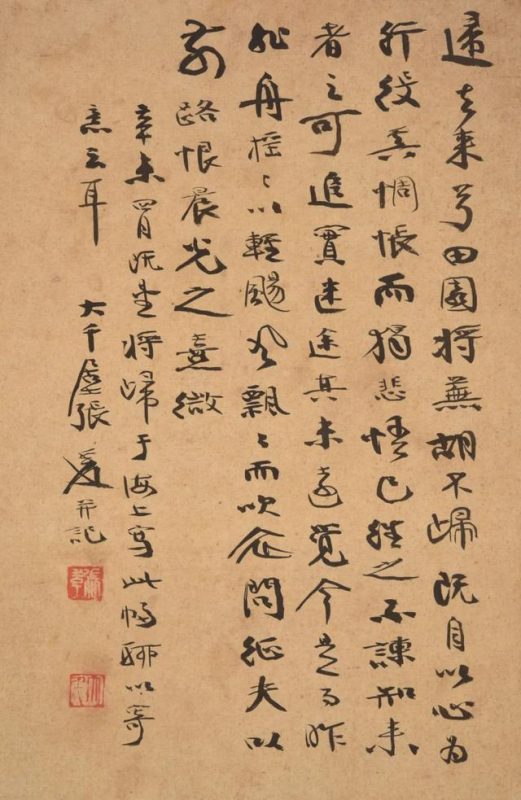 歸去來兮田園將蕪胡不歸既自以心為
形役奚惆悵而獨悲悟已往之不諫知來
者之可追實迷途其未遠覺今是而昨
非舟搖〻以輕颺風飄〻而吹衣問征夫以
前路恨晨光之熹微
辛未四月既望將歸于海上寫此幅聊以寄
意云耳 大千居士張爰并記